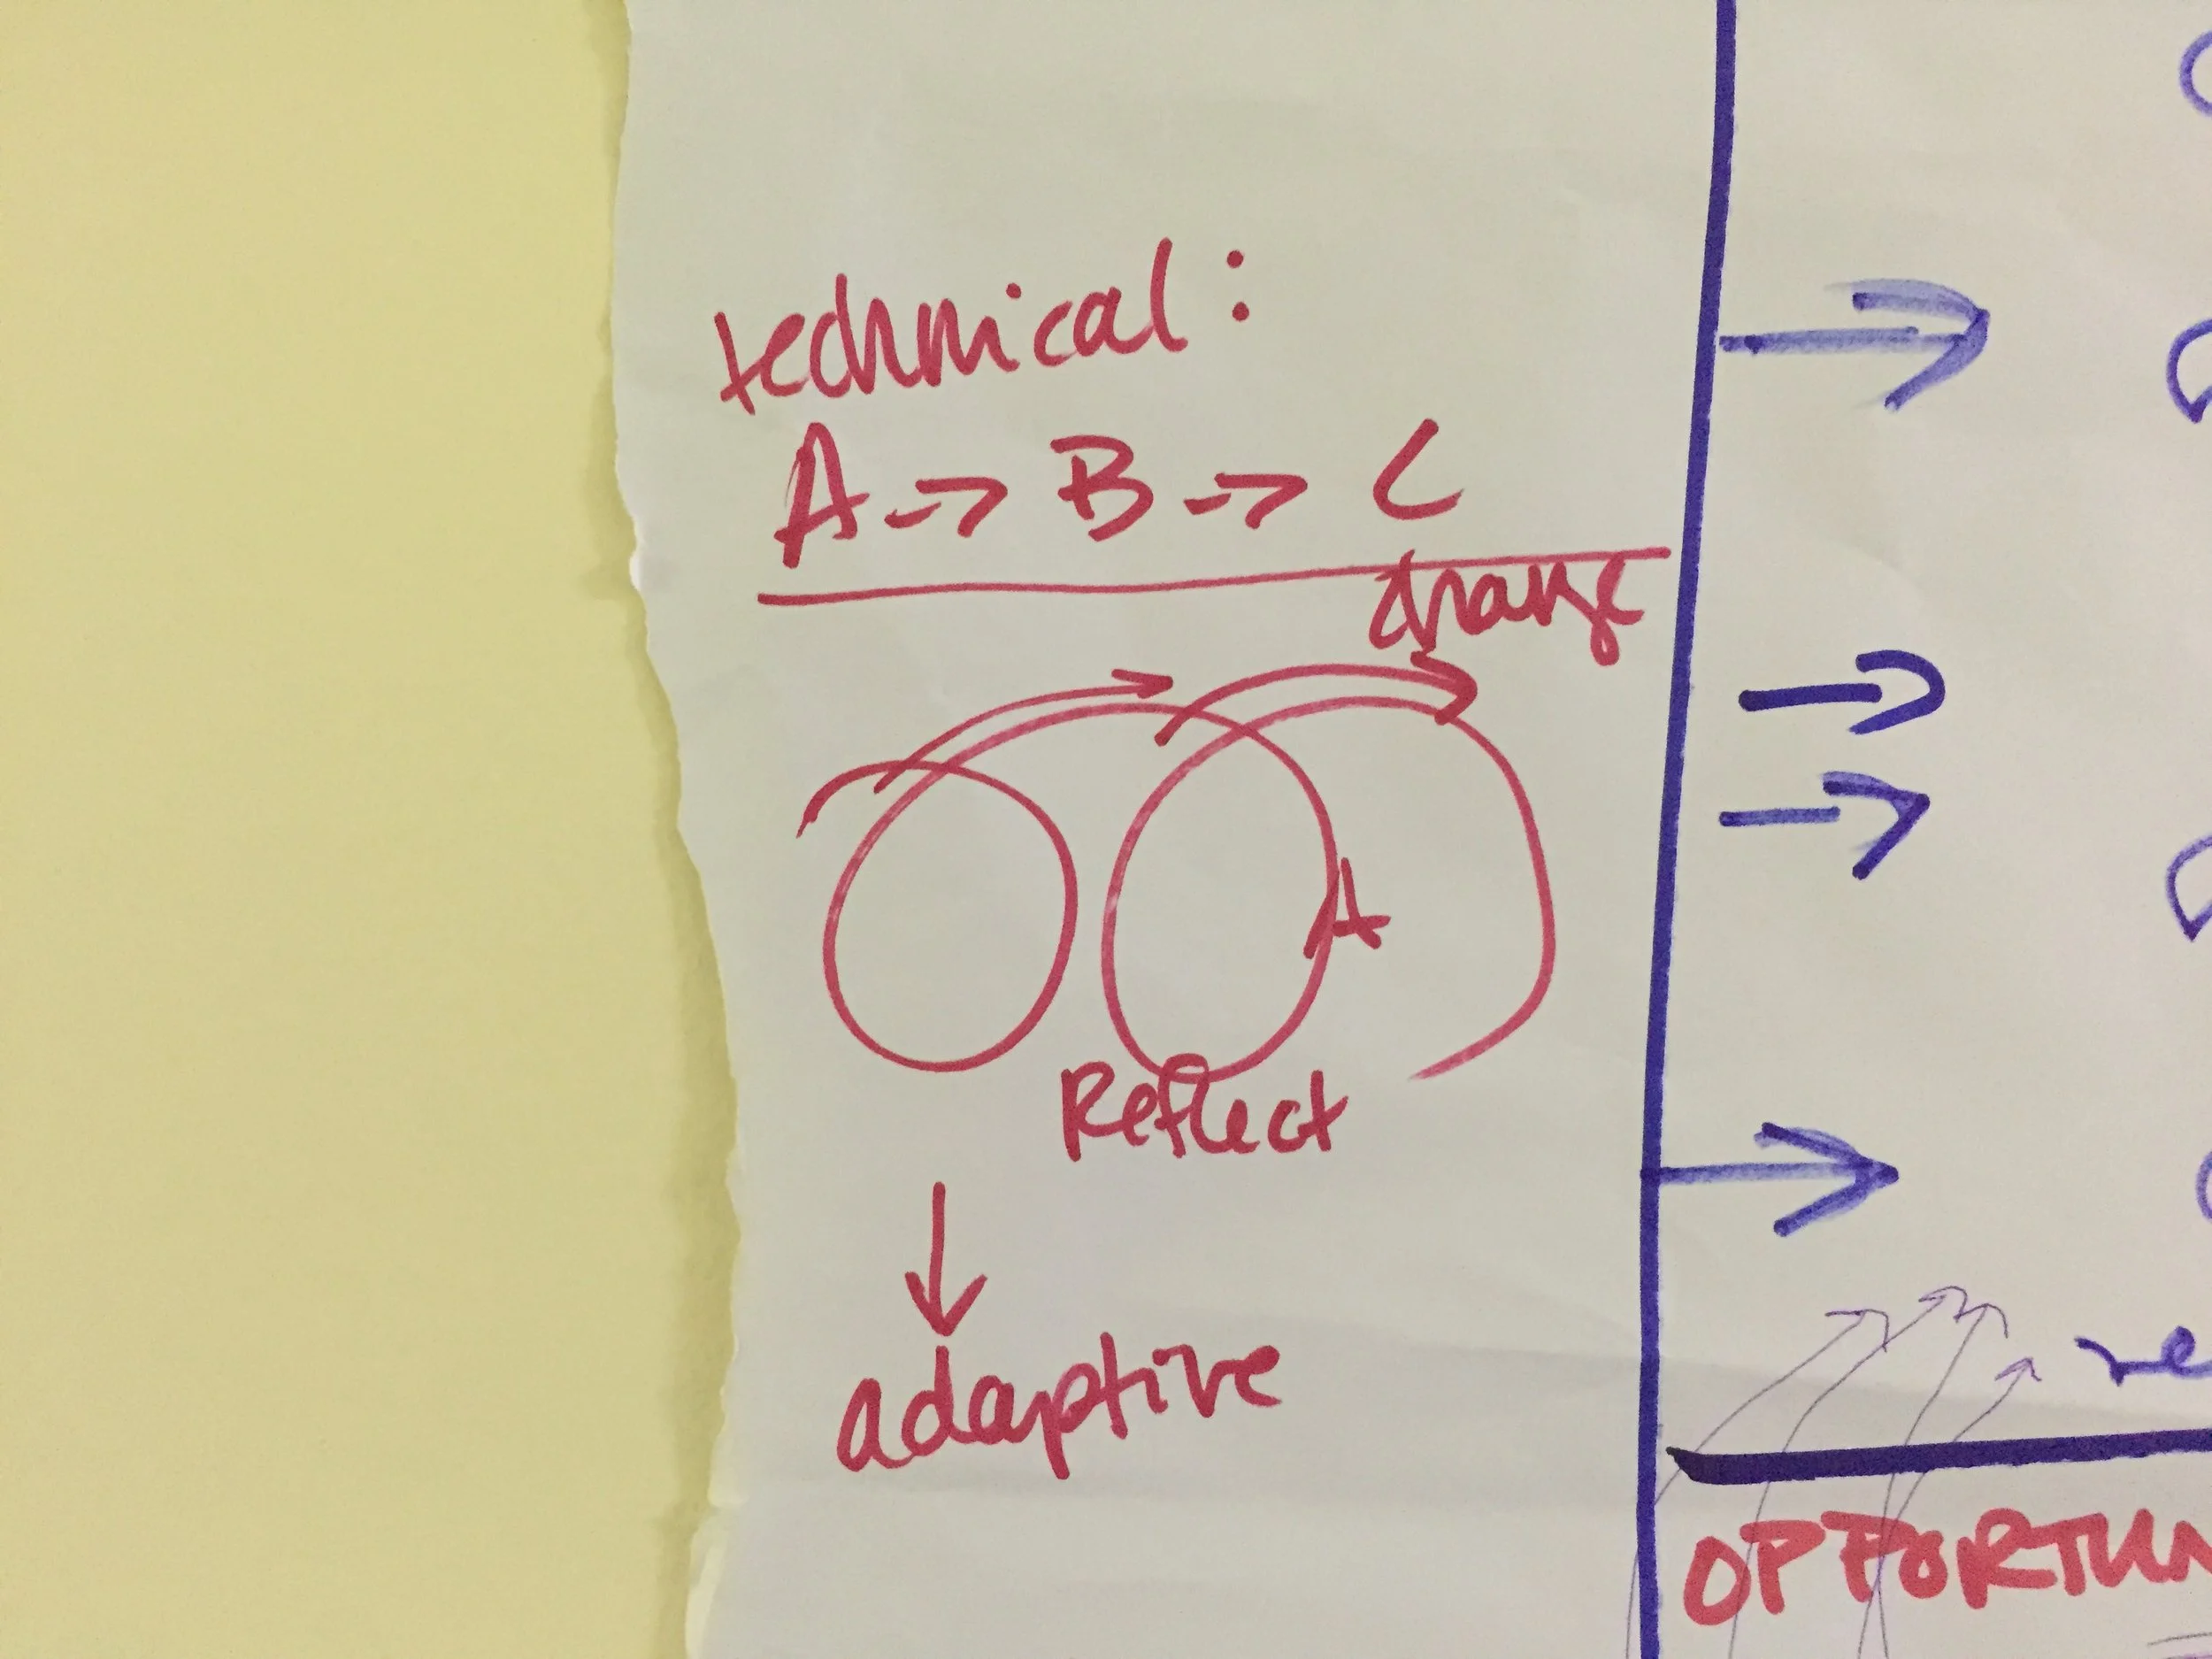 technical:
A -> B -> C
change
A
Reflect
adaptive
re
OPPORTUN